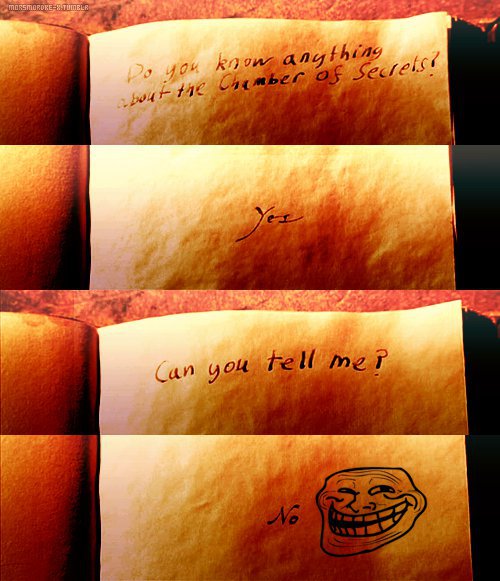 MORSMORDRE-X.TUMBLR
Do you know anything
about the Chamber of Secrets?
Yes
Can you tell me?
No